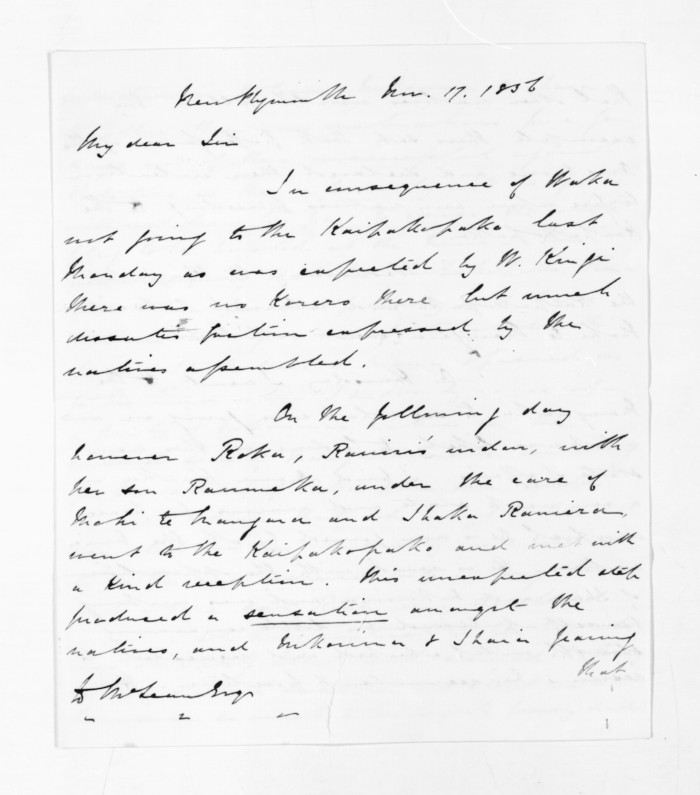 New Plymouth Nov. 17. 1856
My dear Sir
In consequence of Waka
not going to the Kaipakopako last
Monday as was expected by W. Kingi
there was no Korero there but much
dissatisfaction expressed by the
natives assembled.
On the following day
however Roka, Rawiri's widow, with
her son Raumoka, under the care of
Mahi te hangara and Ihaka Raniera,
went to the Kaipakopako and met with
a kind reception. This unexpected step
produced a sensation amongst the
natives, and & Ihaia fearing
that
D McLean Esqr
1